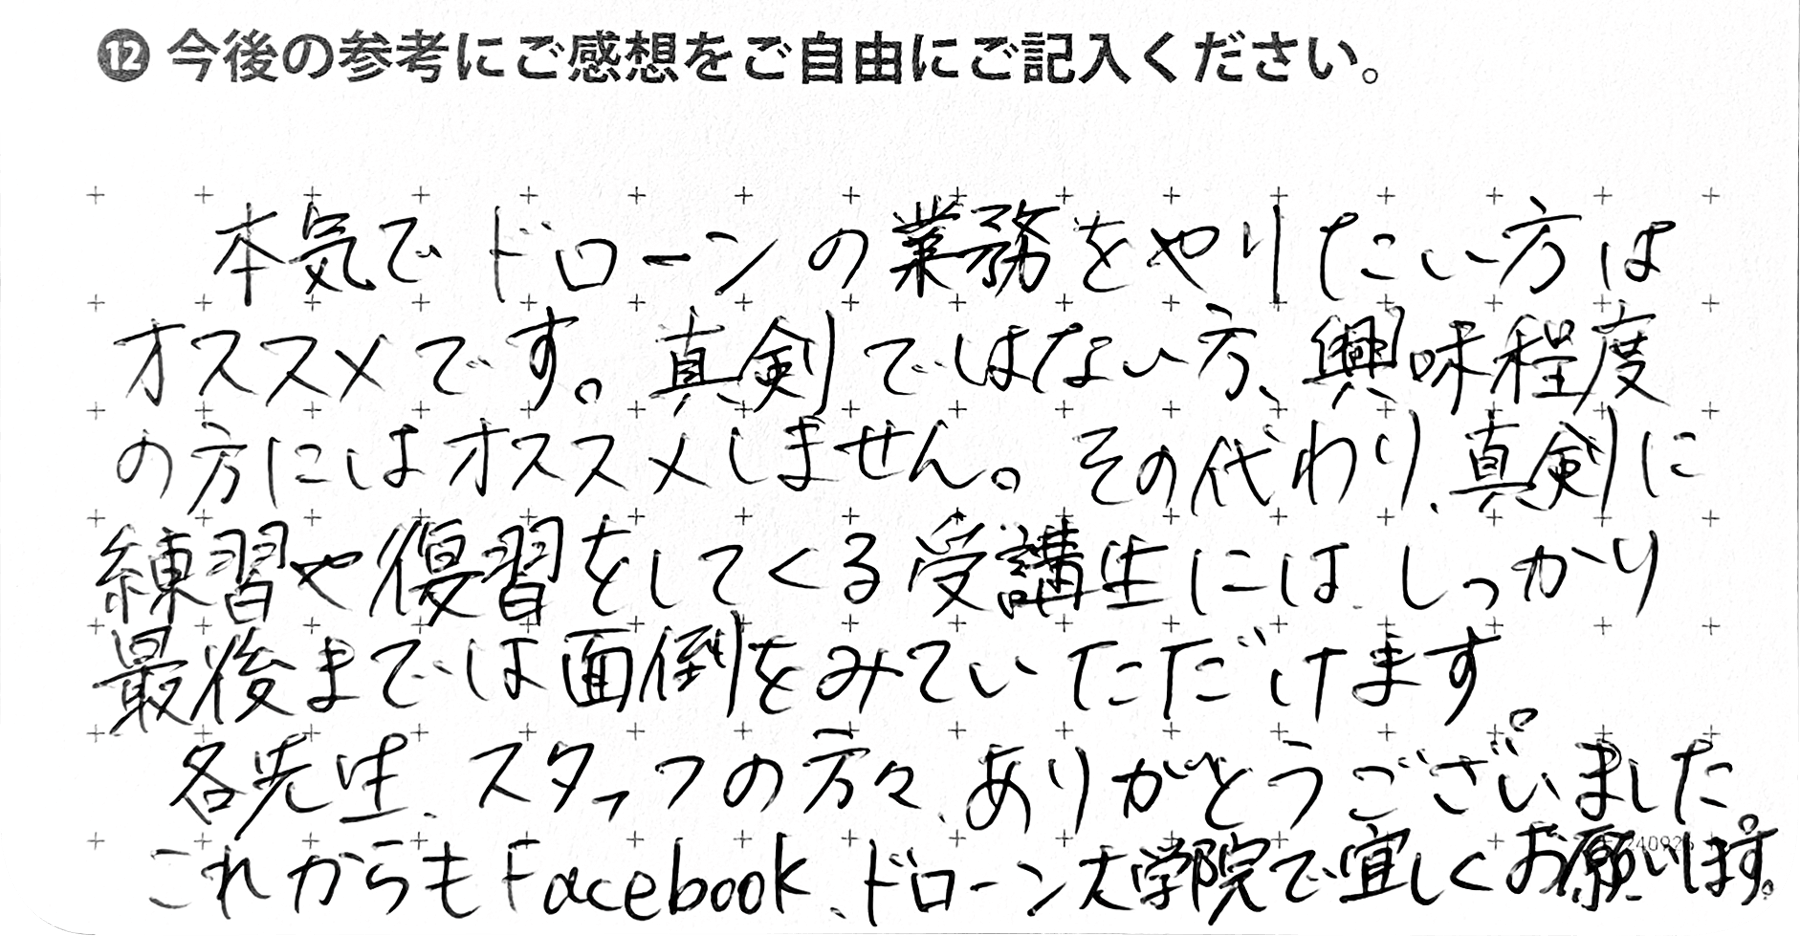 ⓬ 今後の参考にご感想をご自由にご記入ください。
本気でドローンの業務をやりたい方は
オススメです。真剣ではない方、興味程度
の方にはオススメしません。その代わり、真剣に
練習や復習をしてくる受講生には、しっかり
最後までは面倒をみていただけます。
各先生、スタッフの方々、ありがとうございました。
これからもFacebook、ドローン大学院で宜しくお願いします。
240926